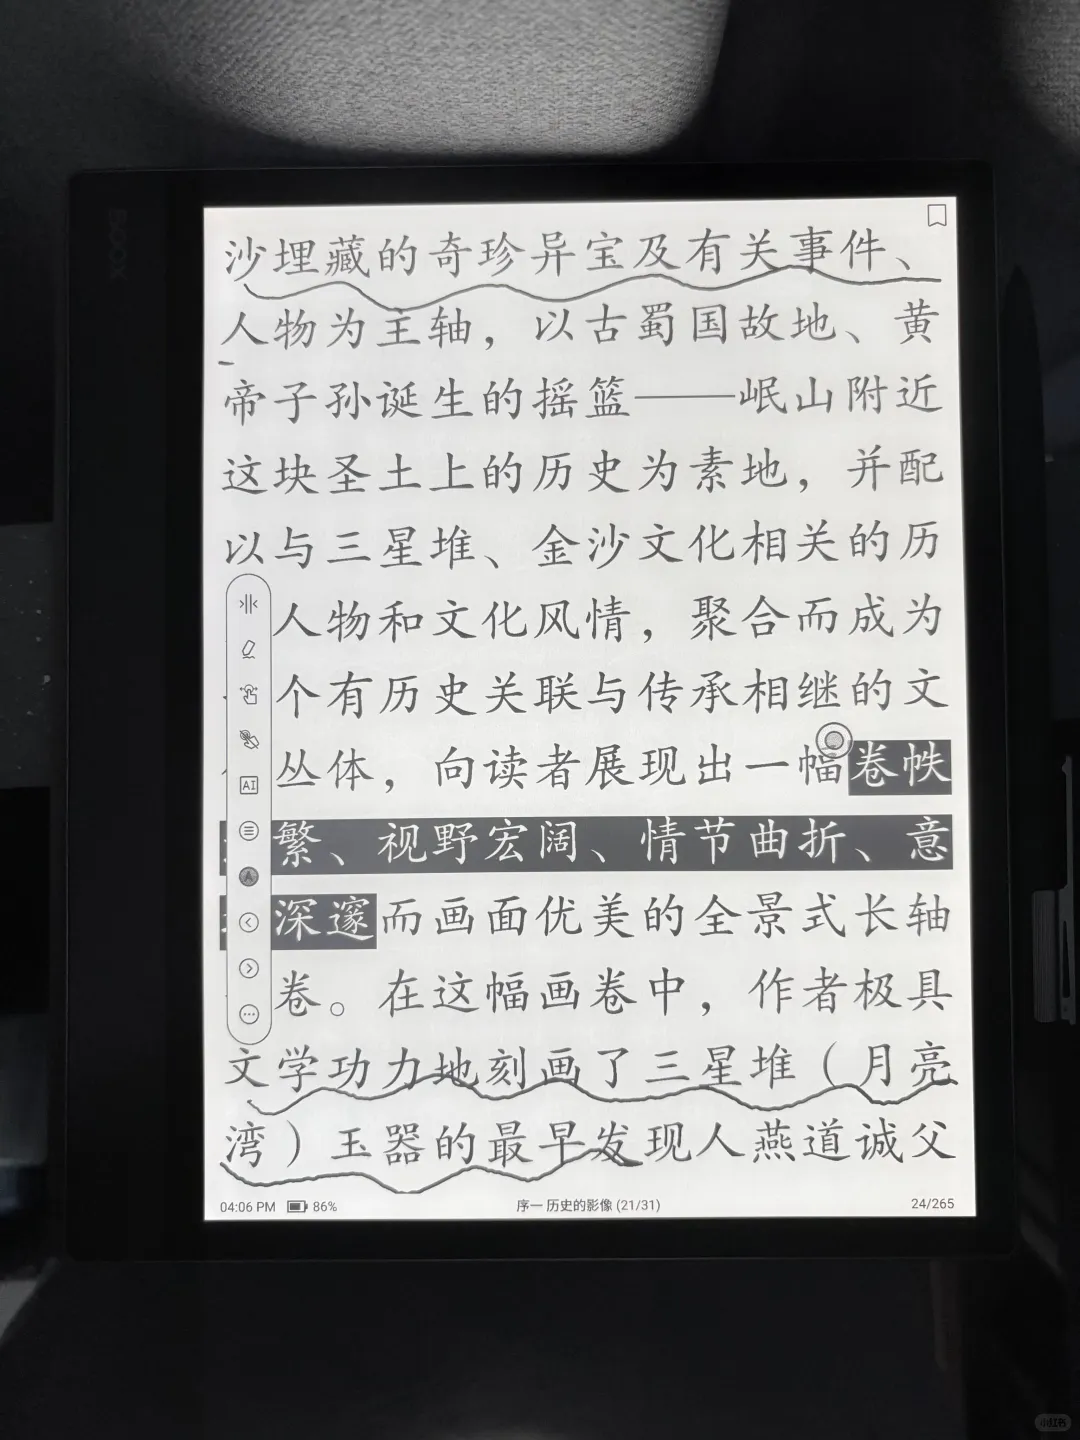 BOOX
沙埋藏的奇珍异宝及有关事件、
人物为主轴，以古蜀国故地、黄
帝子孙诞生的摇篮——岷山附近
这块圣土上的历史为素地，并配
以与三星堆、金沙文化相关的历
人物和文化风情，聚合而成为
个有历史关联与传承相继的文
丛体，向读者展现出一幅卷帙
繁、视野宏阔、情节曲折、意
深邃而画面优美的全景式长轴
卷。在这幅画卷中，作者极具
文学功力地刻画了三星堆（月亮
湾）玉器的最早发现人燕道诚父
AI
A
04:06 PM 86% 序一 历史的影像 (21/31) 24/265
小红书